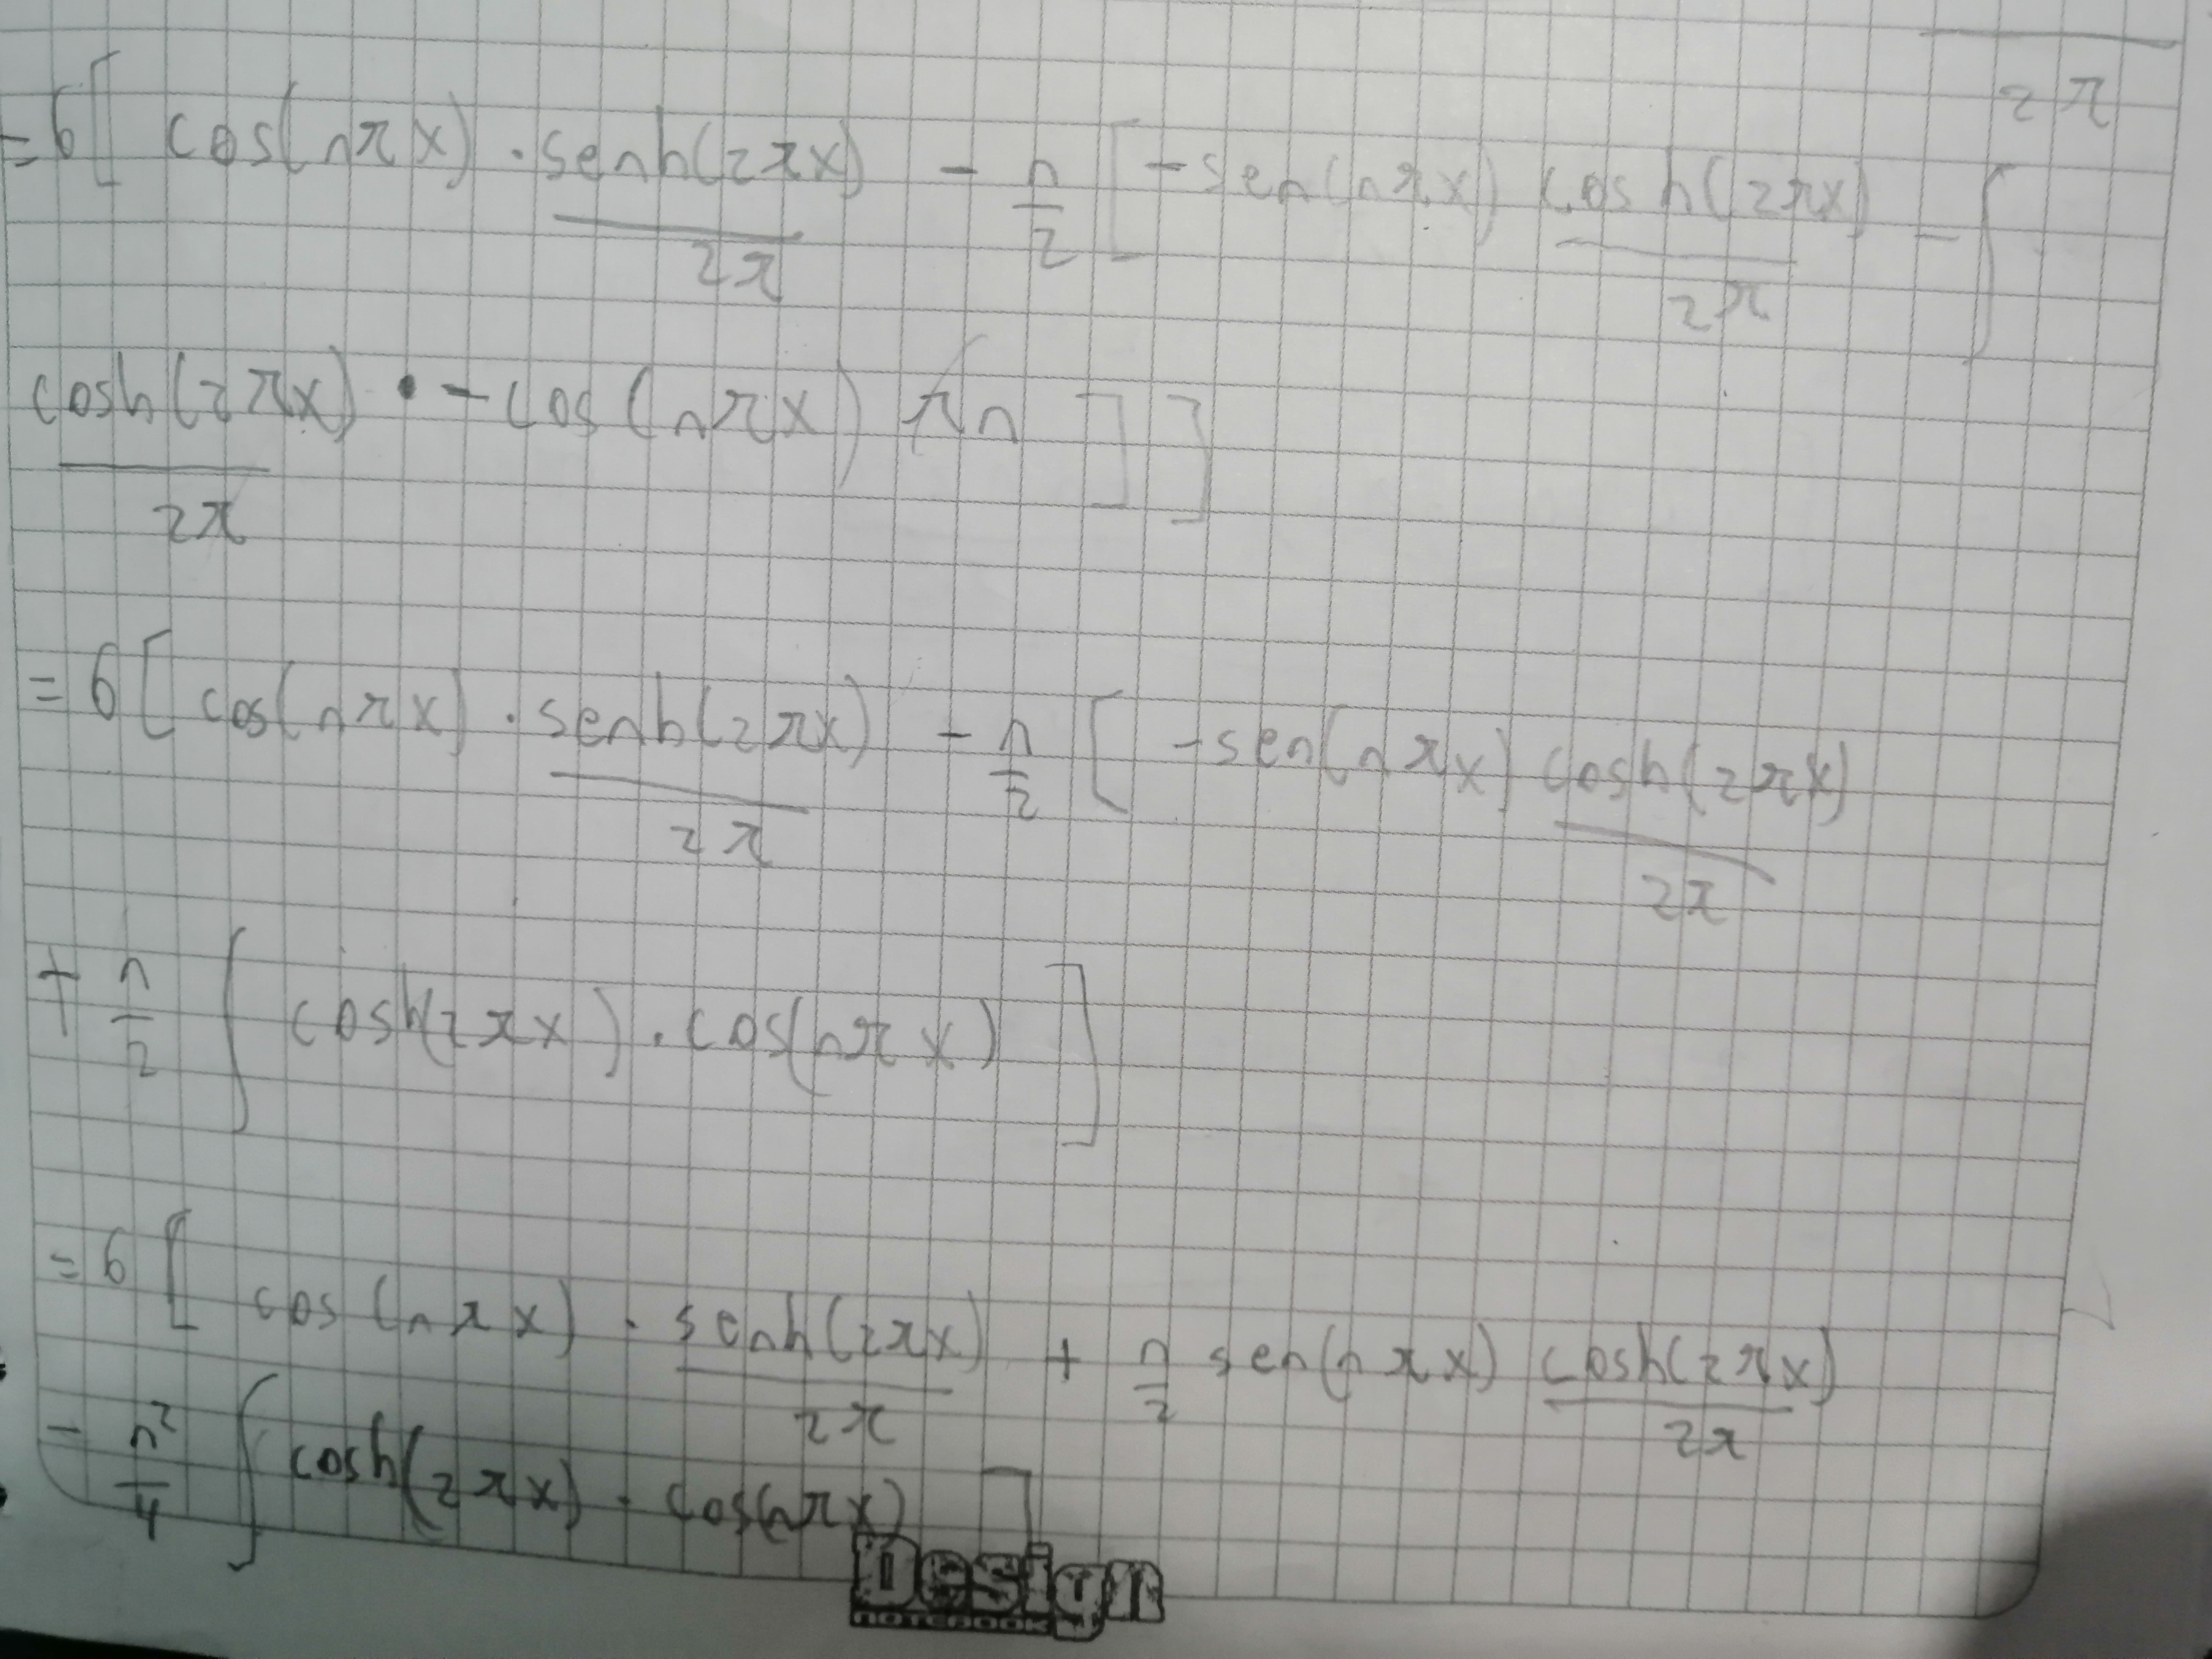 2π
= 6[ cos(nπx) · senh(2πx)/2π - n/2 [ -sen(nπx) cosh(2πx)/2π - ∫
cosh(2πx)/2π · -cos(nπx) πn ] ]
= 6[ cos(nπx) · senh(2πx)/2π - n/2 [ -sen(nπx) cosh(2πx)/2π
+ n/2 ∫ cosh(2πx) · cos(nπx) ]
= 6 [ cos(nπx) · senh(2πx)/2π + n/2 sen(nπx) cosh(2πx)/2π
- n²/4 ∫ cosh(2πx) · cos(nπx) ]
Design
NOTEBOOK